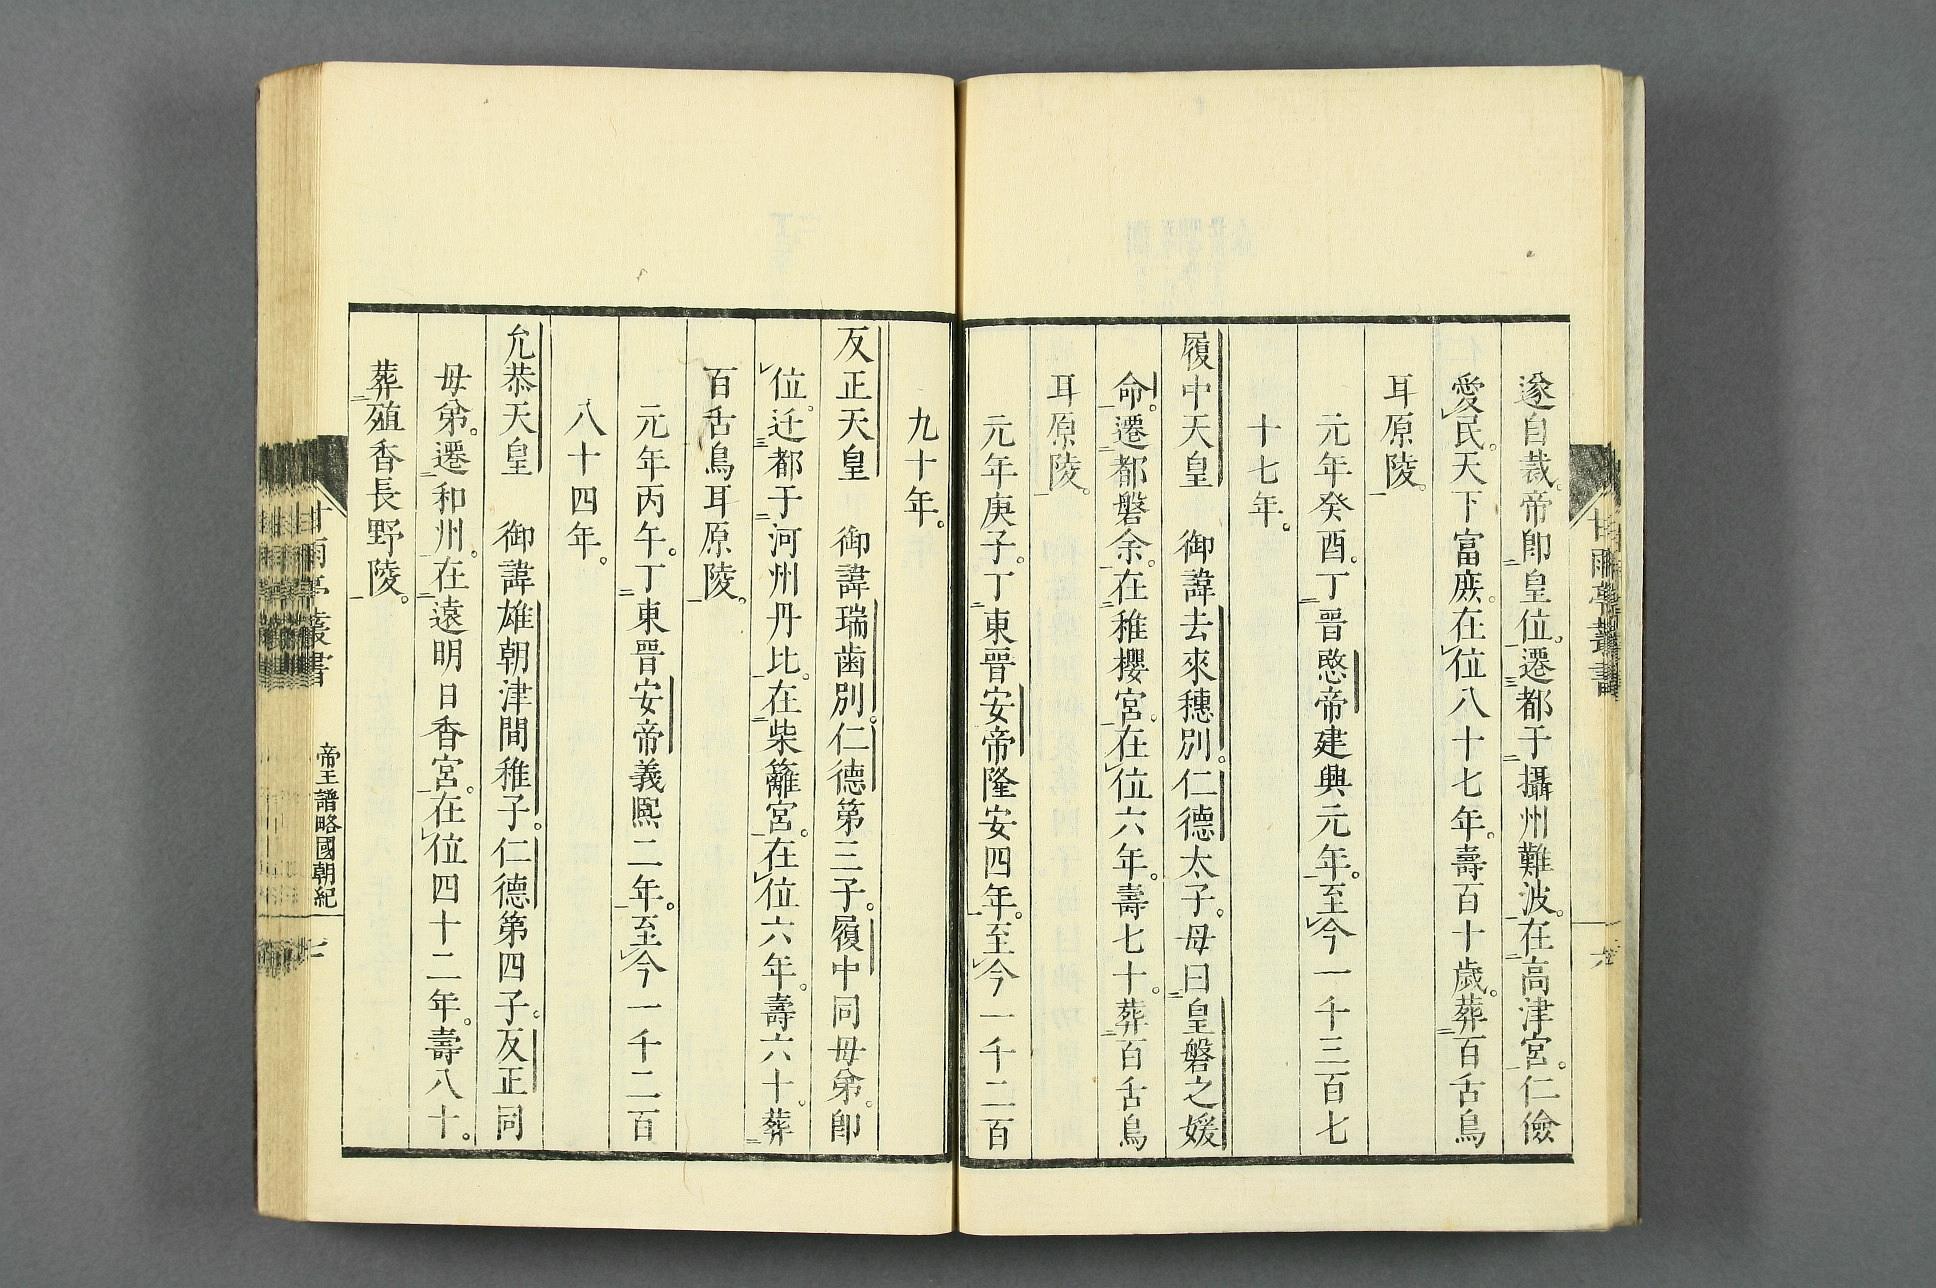 遂自裁。帝卽皇位。遷都于攝州難波。在高津宮。仁儉
愛民。天下富庶。在位八十七年。壽百十歲。葬百舌鳥
耳原陵。
元年癸酉。丁晉愍帝建興元年。至今一千三百七
十七年。
履中天皇　御諱去來穗別。仁德太子。母曰皇磐之媛
命。遷都磐余。在稚櫻宮。在位六年。壽七十。葬百舌鳥
耳原陵。
元年庚子。丁東晉安帝隆安四年。至今一千二百
九十年。
反正天皇　御諱瑞齒別。仁德第三子。履中同母弟。卽
位。迁都于河州丹比。在柴籬宮。在位六年。壽六十。葬
百舌鳥耳原陵。
元年丙午。丁東晉安帝義熙二年。至今一千二百
八十四年。
允恭天皇　御諱雄朝津間稚子。仁德第四子。反正同
母弟。遷和州。在遠明日香宮。在位四十二年。壽八十。
葬殖香長野陵。
甘雨亭叢書　帝王譜略國朝紀　七